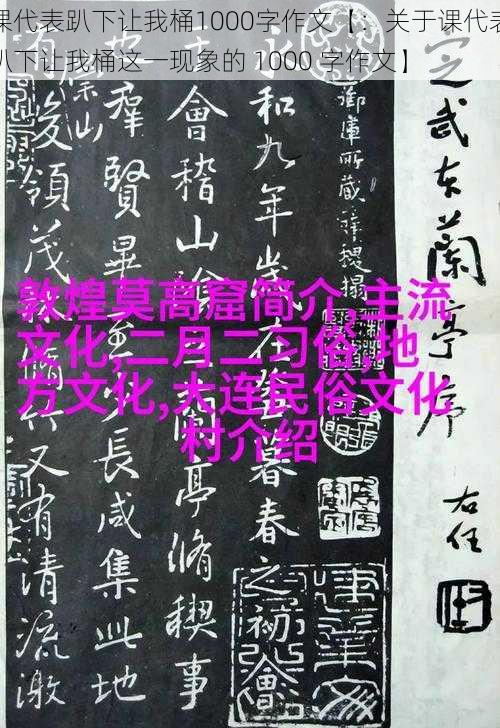 课代表趴下让我桶1000字作文【：关于课代表
趴下让我桶这一现象的 1000 字作文】
敦煌莫高窟简介,主流
文化,二月二习俗,地
方文化,大连民俗文化
村介绍
定武本蘭亭序
右任
永和九年歲在癸丑暮春之初會
會稽山陰之蘭亭脩禊事
羣賢畢至少長咸集此地
有崇山峻領茂林脩竹又有清流激